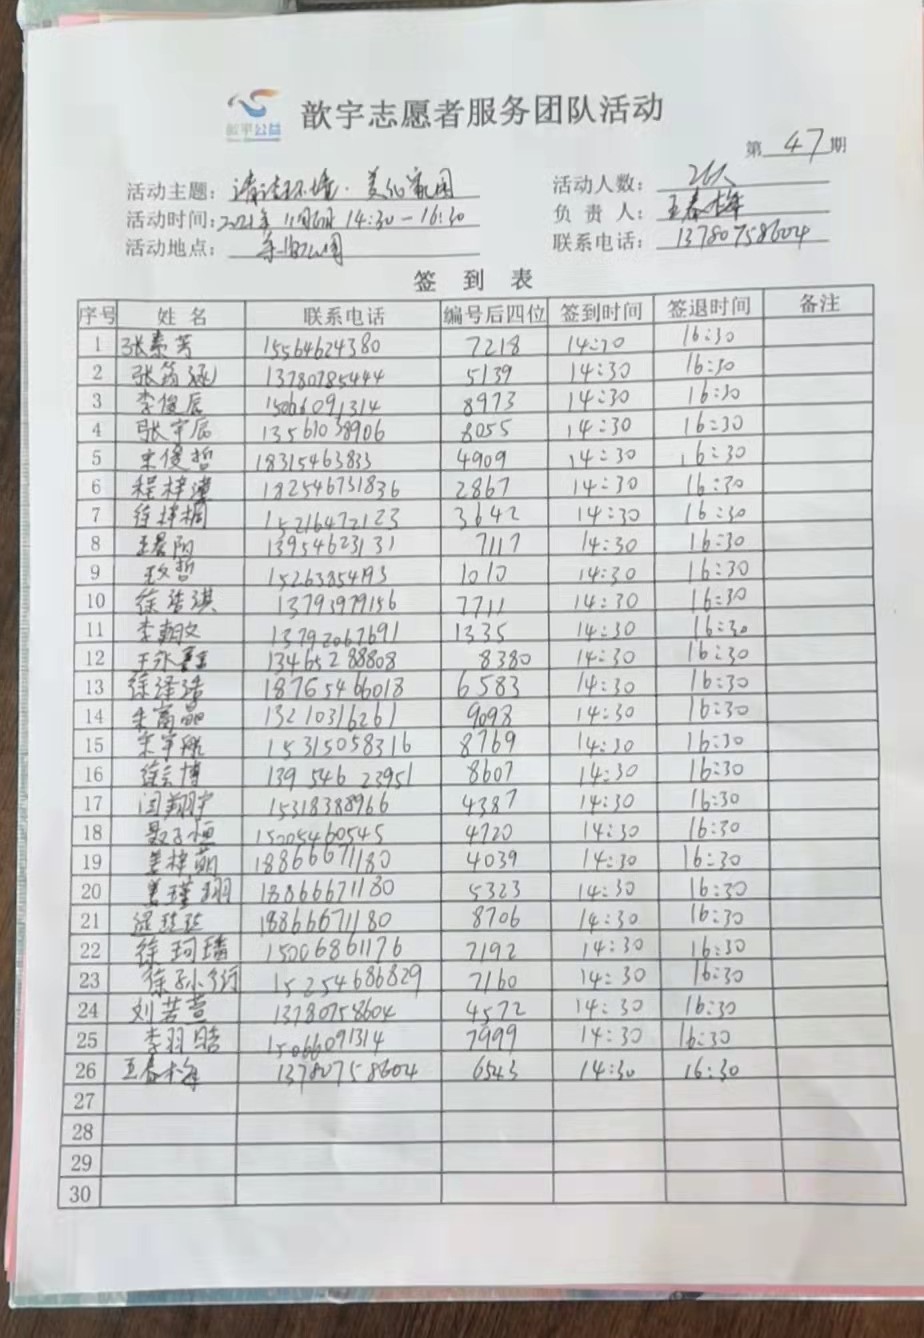 歆宇志愿者服务团队活动
公益
第 47 期
活动主题: 清洁环境·美化家园
活动人数: 26人
活动时间: 2021年11月6日 14:30-16:30
负责人: 王春梅
活动地点: 公园
联系电话: 13780758604
签到表
序号 姓名 联系电话 编号后四位 签到时间 签退时间 备注
1 张素芳 15564624380 7218 14:30 16:30
2 张筠涵 13780785444 5139 14:30 16:30
3 李俊辰 15066091314 8973 14:30 16:30
4 张宇辰 13561038906 8055 14:30 16:30
5 宋俊哲 18315463833 4909 14:30 16:30
6 程梓潼 182546731836 2867 14:30 16:30
7 徐梓桐 15216472123 3642 14:30 16:30
8 王晨阳 13954623131 7117 14:30 16:30
9 哲 15263854193 1010 14:30 16:30
10 徐浩淇 13793979156 7711 14:30 16:30
11 李朝文 13792067691 1335 14:30 16:30
12 王永鑫 134652 88808 8380 14:30 16:30
13 徐泽浩 18765466018 6583 14:30 16:30
14 朱富晶 13210316261 9098 14:30 16:30
15 宋宇航 15315058316 8769 14:30 16:30
16 徐云博 139 546 23951 8607 14:30 16:30
17 闫翔宇 15318388966 4387 14:30 16:30
18 聂子恒 15005460545 4720 14:30 16:30
19 姜梓萌 18866671180 4039 14:30 16:30
20 姜瑾翔 18866671180 5323 14:30 16:30
21 18866671180 8706 14:30 16:30
22 徐珂璠 15006861176 7192 14:30 16:30
23 徐 15254686829 7160 14:30 16:30
24 刘若萱 13780758604 4572 14:30 16:30
25 李羽晧 15066091314 7999 14:30 16:30
26 王春梅 13780758604 6543 14:30 16:30
27
28
29
30